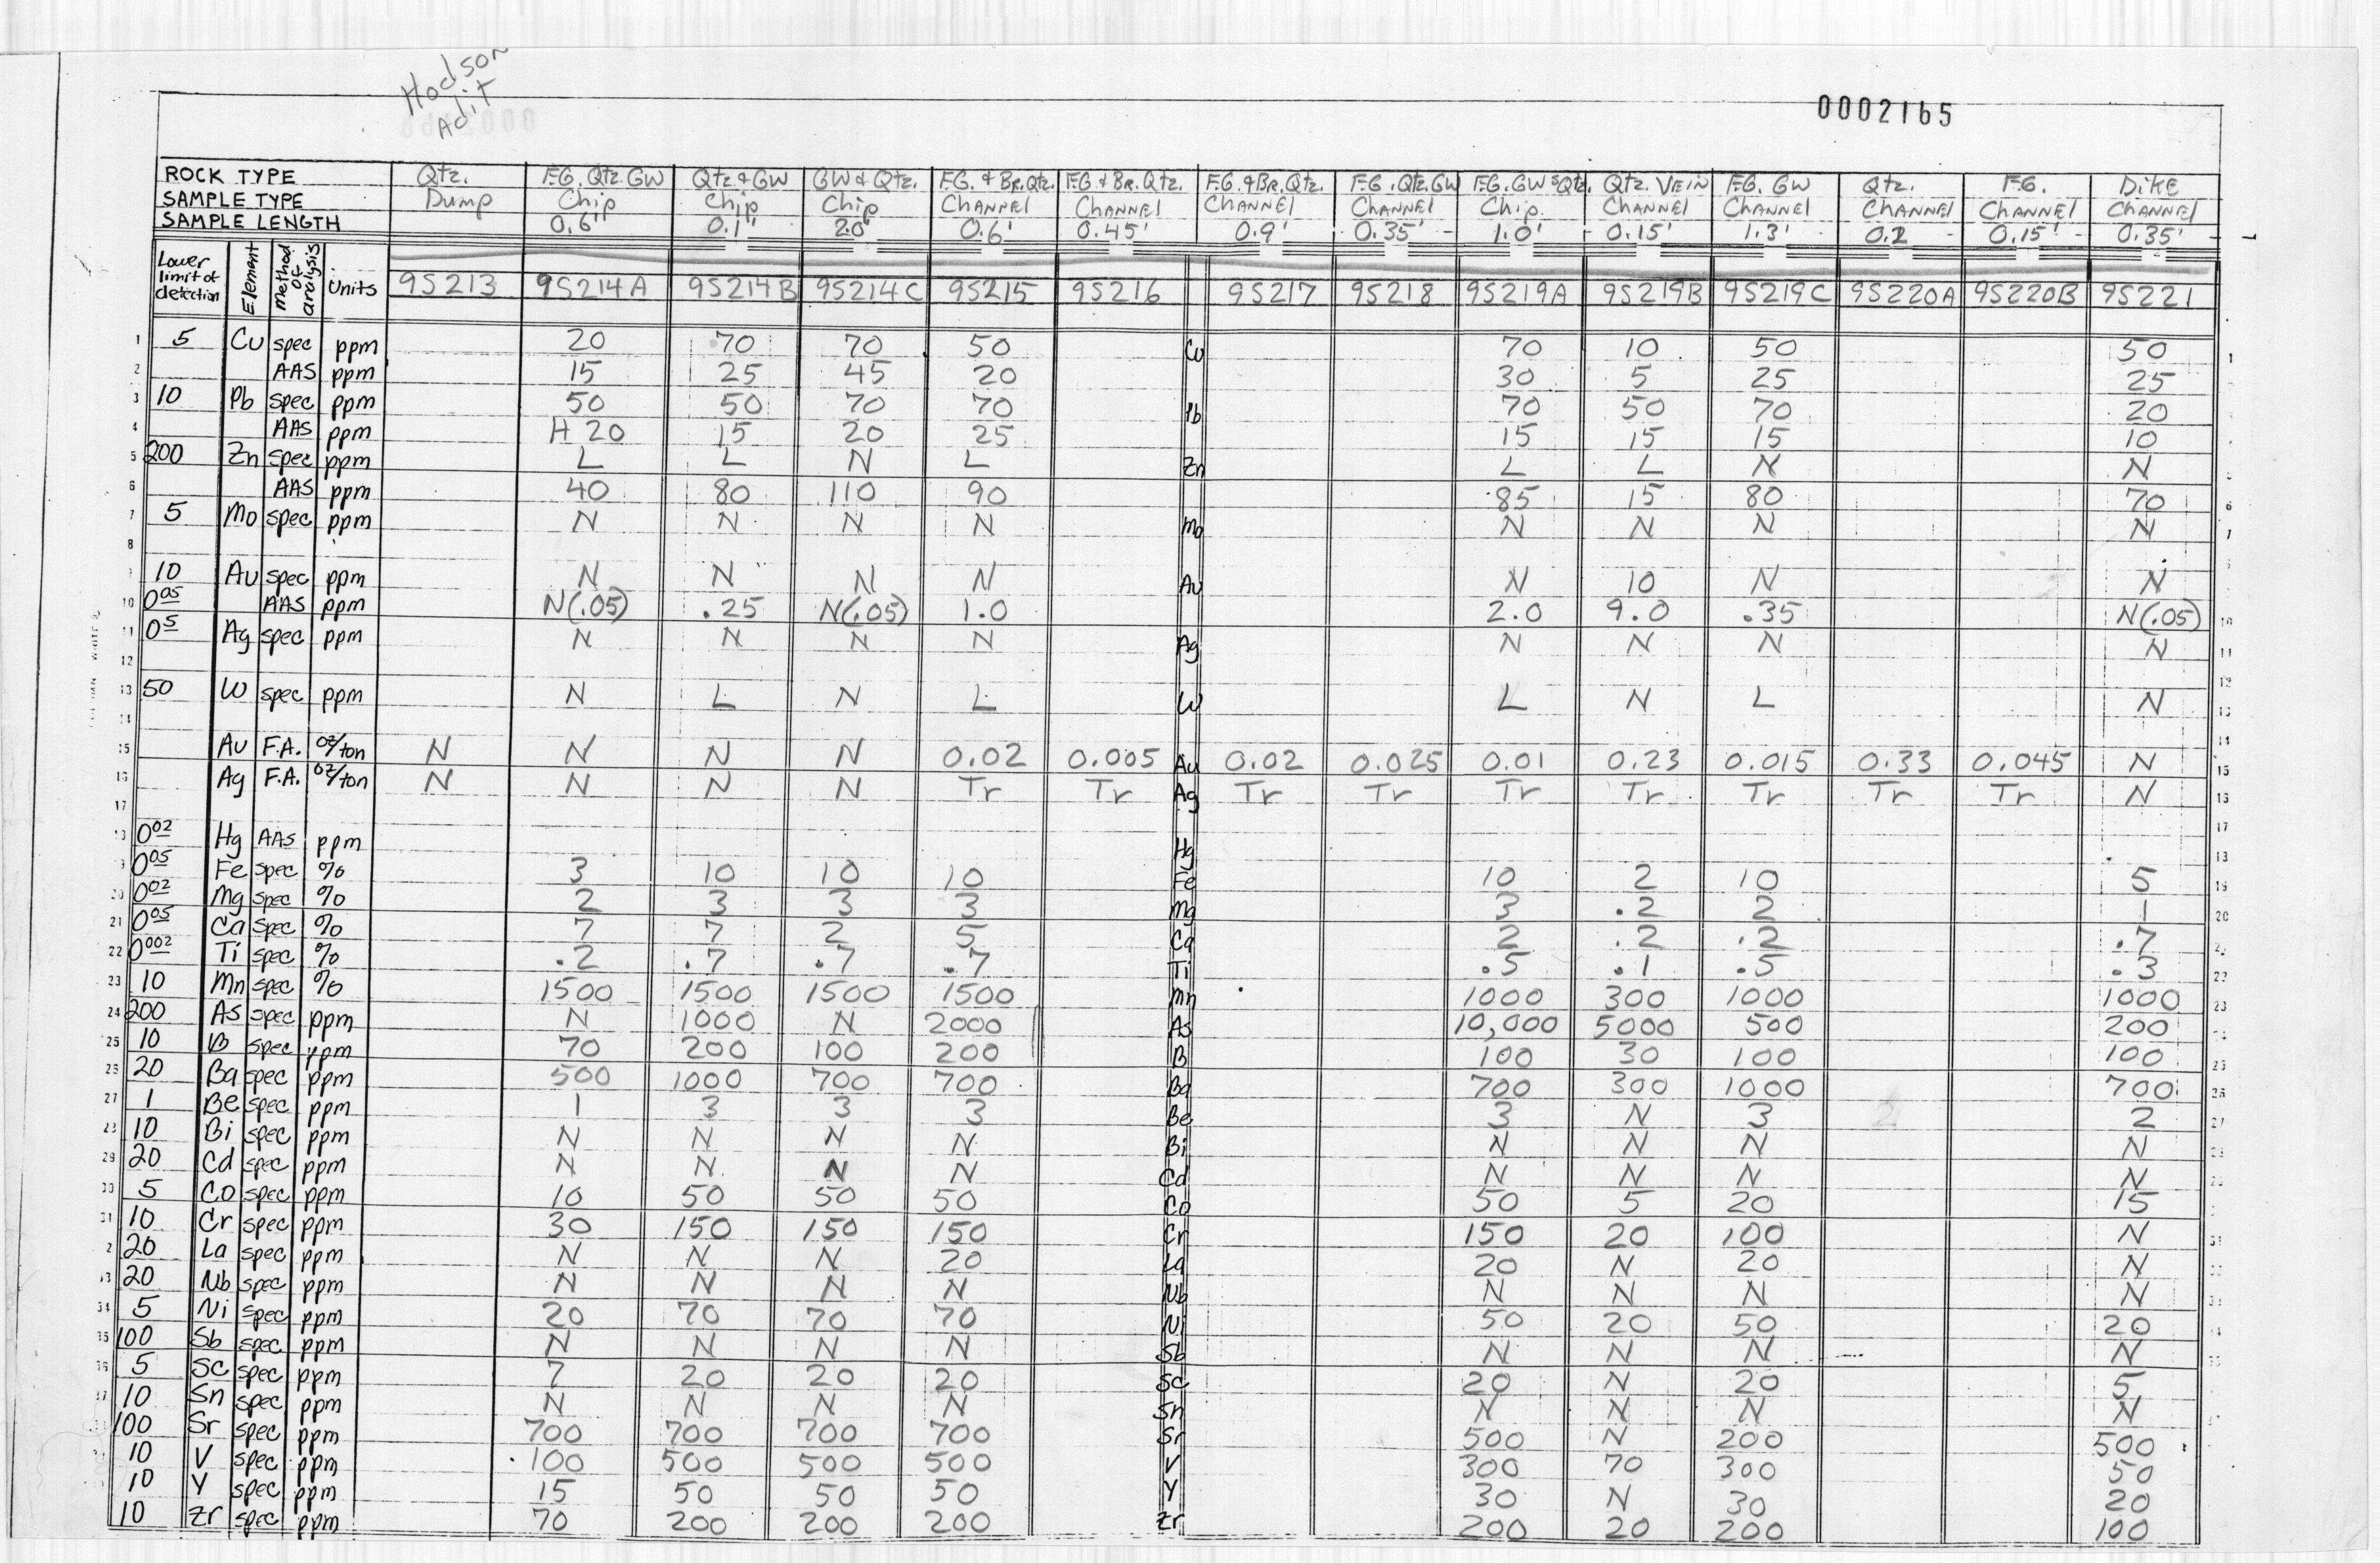 Hodson
Adit
0002165
ROCK TYPE Qtz. F.G. Qtz. GW Qtz & GW GW & Qtz. F.G. & Br. Qtz. F.G & Br. Qtz. F.G. & Br. Qtz. F.G. Qtz. GW F.G. GW & Qtz. Qtz. VEIN F.G. GW Qtz. F.G. DIKE
SAMPLE TYPE Dump Chip Chip Chip CHANNEL CHANNEL CHANNEL CHANNEL Chip CHANNEL CHANNEL CHANNEL CHANNEL CHANNEL
SAMPLE LENGTH 0.6' 0.1' 2.0' 0.6' 0.45' 0.9' 0.35' 1.0' 0.15' 1.3' 0.2 0.15' 0.35'
Lower limit of detection Element Method of analysis Units 9S213 9S214A 9S214B 9S214C 9S215 9S216 9S217 9S218 9S219A 9S219B 9S219C 9S220A 9S220B 9S221
1 5 Cu spec ppm 20 70 70 50 Cu 70 10 50 50 1
2 AAS ppm 15 25 45 20 30 5 25 25
3 10 Pb spec ppm 50 50 70 70 Pb 70 50 70 20
4 AAS ppm H 20 15 20 25 15 15 15 10
5 200 Zn spec ppm L L N L Zn L L N N
6 AAS ppm 40 80 110 90 85 15 80 70 6
7 5 Mo spec ppm N N N N Mo N N N N 7
8
9 10 Au spec ppm N N N N Au N 10 N N
10 0.05 AAS ppm N(.05) .25 N(.05) 1.0 2.0 9.0 .35 N(.05) 10
11 0.5 Ag spec ppm N N N N Ag N N N N 11
12 12
13 50 W spec ppm N L N L W L N L N 13
14 14
15 Au F.A. oz/ton N N N N 0.02 0.005 Au 0.02 0.025 0.01 0.23 0.015 0.33 0.045 N 15
16 Ag F.A. oz/ton N N N N Tr Tr Ag Tr Tr Tr Tr Tr Tr Tr N 16
17 17
18 0.02 Hg AAS ppm Hg 18
19 0.05 Fe spec % 3 10 10 10 Fe 10 2 10 5 19
20 0.02 Mg spec % 2 3 3 3 Mg 3 .2 2 1 20
21 0.05 Ca spec % 7 7 2 5 Ca 2 .2 .2 .7 21
22 0.002 Ti spec % .2 .7 .7 .7 Ti .5 .1 .5 .3 22
23 10 Mn spec % 1500 1500 1500 1500 Mn 1000 300 1000 1000 23
24 200 As spec ppm N 1000 N 2000 As 10,000 5000 500 200 24
25 10 B spec ppm 70 200 100 200 B 100 30 100 100 25
26 20 Ba spec ppm 500 1000 700 700 Ba 700 300 1000 700 26
27 1 Be spec ppm 1 3 3 3 Be 3 N 3 2 27
28 10 Bi spec ppm N N N N Bi N N N N
29 20 Cd spec ppm N N N N Cd N N N N
30 5 Co spec ppm 10 50 50 50 Co 50 5 20 15
31 10 Cr spec ppm 30 150 150 150 Cr 150 20 100 N
20 La spec ppm N N N 20 La 20 N 20 N
20 Nb spec ppm N N N N Nb N N N N
34 5 Ni spec ppm 20 70 70 70 Ni 50 20 50 20
35 100 Sb spec ppm N N N N Sb N N N N
36 5 Sc spec ppm 7 20 20 20 Sc 20 N 20 5
37 10 Sn spec ppm N N N N Sn N N N N
100 Sr spec ppm 700 700 700 700 Sr 500 N 200 500
10 V spec ppm 100 500 500 500 V 300 70 300 50
10 Y spec ppm 15 50 50 50 Y 30 N 30 20
10 Zr spec ppm 70 200 200 200 Zr 200 20 200 100